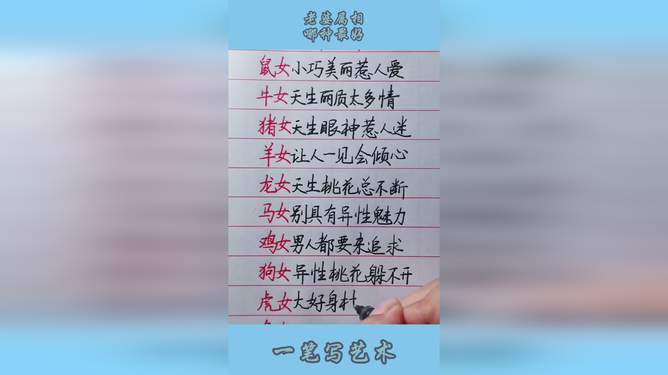 老婆属相
哪种最好
鼠女小巧美丽惹人爱
牛女天生丽质太多情
猪女天生眼神惹人迷
羊女让人一见会倾心
龙女天生桃花总不断
马女别具有异性魅力
鸡女男人都要来追求
狗女异性桃花躲不开
虎女大好身
一笔写艺术